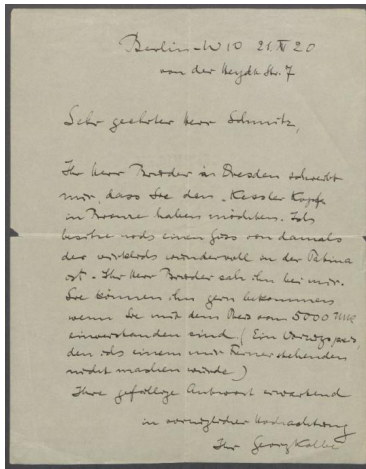 Berlin-W 10 21. XI 20
von der Heydt Str. 7
Sehr geehrter Herr Schmitz,
Ihr Herr Bruder in Dresden schreibt
mir, dass Sie den "Kessler Kopf"
in Bronze haben möchten. Ich
besitze noch einen Guss von damals
der wirklich wundervoll in der Patina
ist. Ihr Herr Bruder sah ihn bei mir.
Sie können ihn gern bekommen
wenn Sie mit dem Preis von 5000 Mk
einverstanden sind. (Ein Vorzugspreis,
den ich einem mir Fernerstehenden
nicht machen würde)
Ihre gefällige Antwort erwartend
in vorzüglicher Hochachtung
Ihr Georg Kolbe